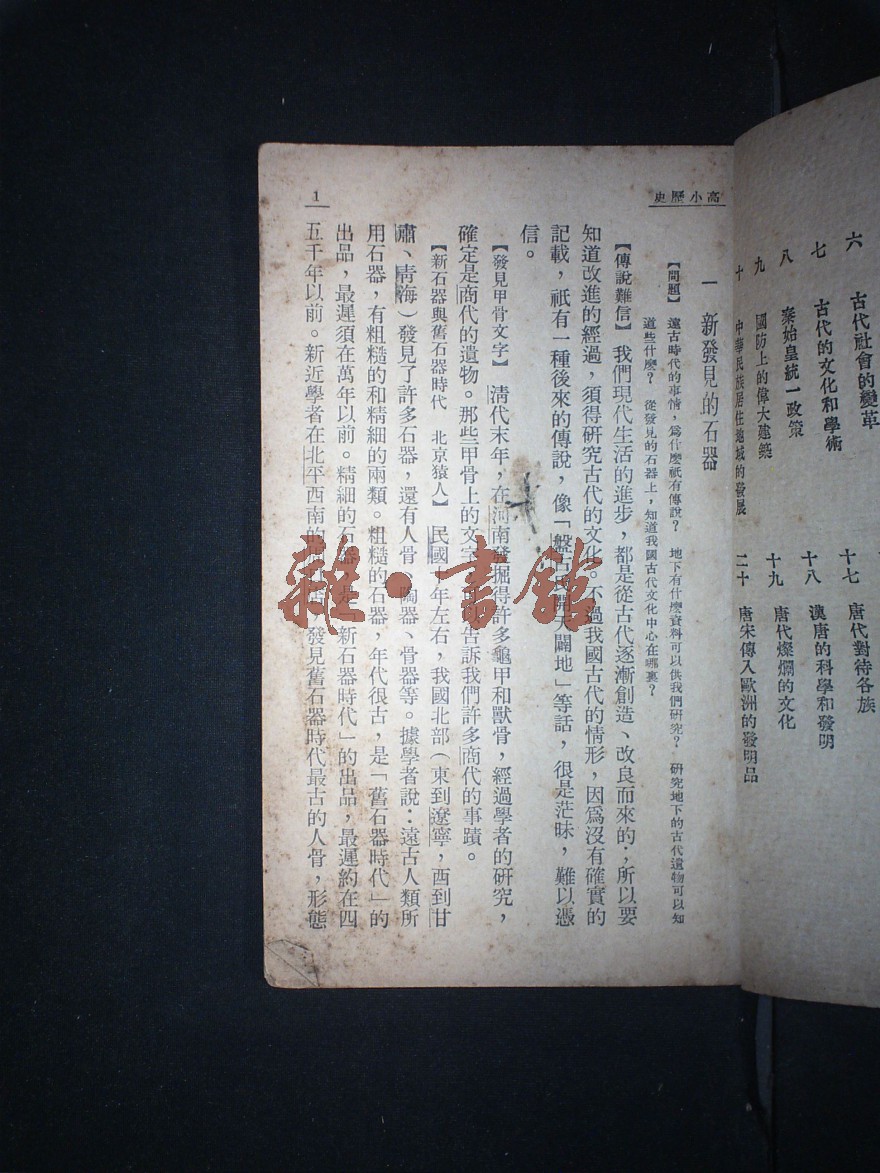 六 古代社會的變革
七 古代的文化和學術
八 秦始皇統一政策
九 國防上的偉大建築
十 中華民族居住地域的發展
十七 唐代對待各族
十八 漢唐的科學和發明
十九 唐代燦爛的文化
二十 唐宋傳入歐洲的發明品
高小歷史
一 新發見的石器
【問題】 遠古時代的事情，爲什麼祇有傳說？ 地下有什麼資料可以供我們研究？ 研究地下的古代遺物可以知
道些什麼？ 從發見的石器上，知道我國古代文化中心在哪裏？
【傳說難信】 我們現代生活的進步，都是從古代逐漸創造、改良而來的；所以要
知道改進的經過，須得研究古代的文化。不過我國古代的情形，因爲沒有確實的
記載，祇有一種後來的傳說，像「盤古開天闢地」等話，很是茫昧，難以憑
信。
【發見甲骨文字】 清代末年，在河南發掘得許多龜甲和獸骨，經過學者的研究，
確定是商代的遺物。那些甲骨上的文字告訴我們許多商代的事蹟。
【新石器與舊石器時代 北京猿人】 民國十年左右，我國北部（東到遼寧，西到甘
肅、靑海）發見了許多石器，還有人骨、陶器、骨器等。據學者說：遠古人類所
用石器，有粗糙的和精細的兩類。粗糙的石器，年代很古，是「舊石器時代」的
出品，最遲須在萬年以前。精細的石器，是「新石器時代」的出品，最遲約在四
五千年以前。新近學者在北平西南的發見舊石器時代最古的人骨，形態
1
雜·書館